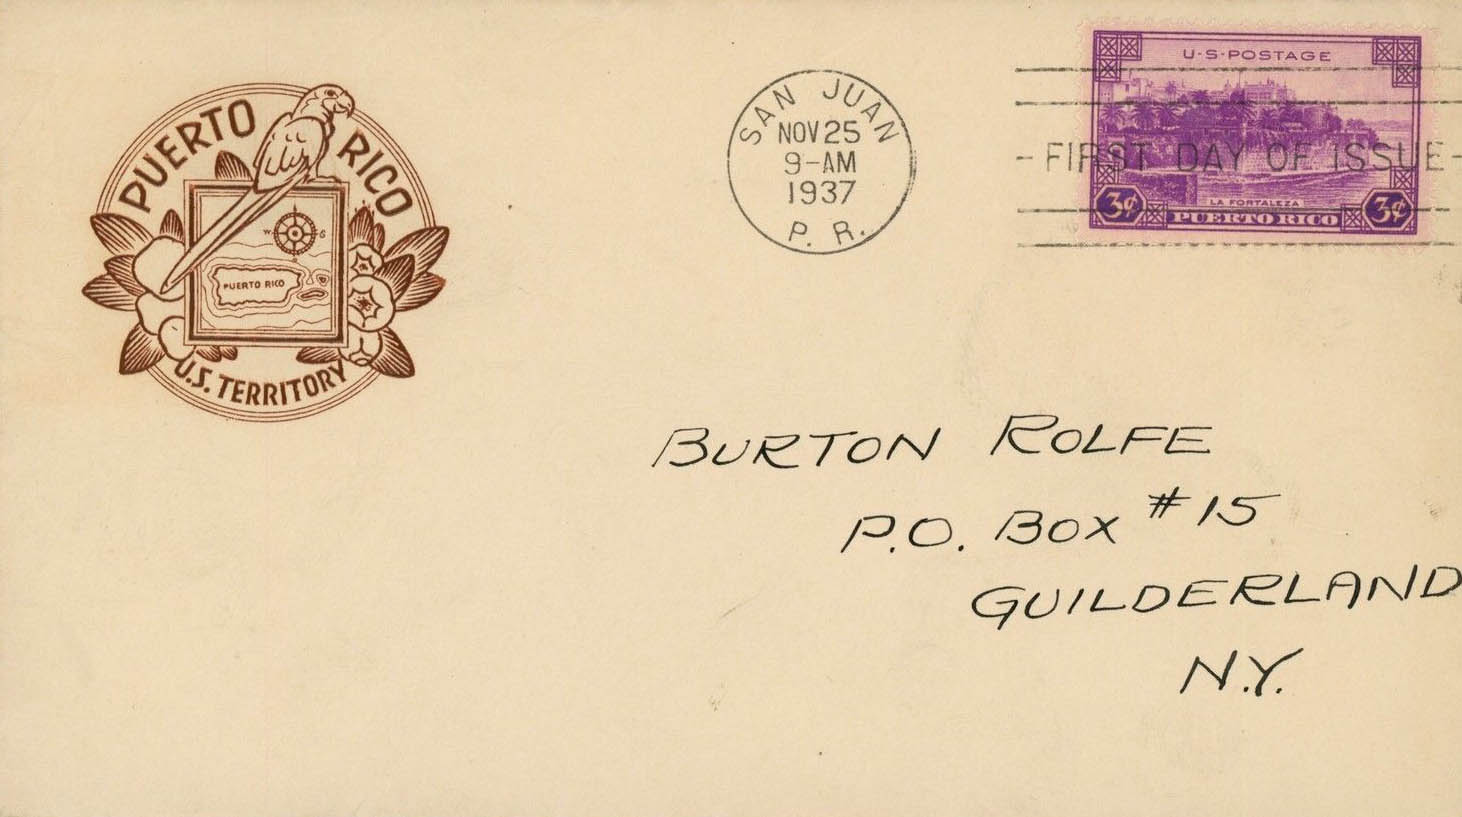 PUERTO RICO
W
S
PUERTO RICO
U.S. TERRITORY
SAN JUAN
NOV 25
9-AM
1937
P. R.
U·S·POSTAGE
- FIRST DAY OF ISSUE -
LA FORTALEZA
3¢ PUERTO RICO 3¢
BURTON ROLFE
P.O. BOX #15
GUILDERLAND
N.Y.